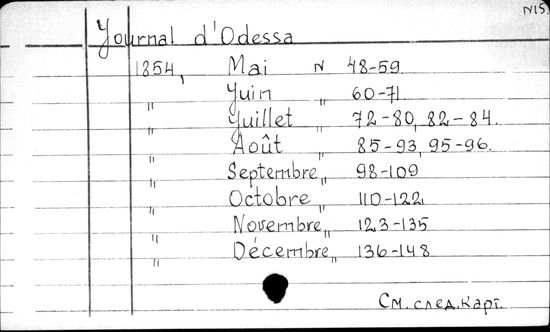 N15
Journal d'Odessa
1854, Mai N 48-59.
" Juin " 60-71.
" Juillet " 72-80, 82-84.
" Août " 85-93, 95-96.
" Septembre " 98-109
" Octobre " 110-122
" Novembre " 123-135
" Décembre " 136-148
См. след. карт.